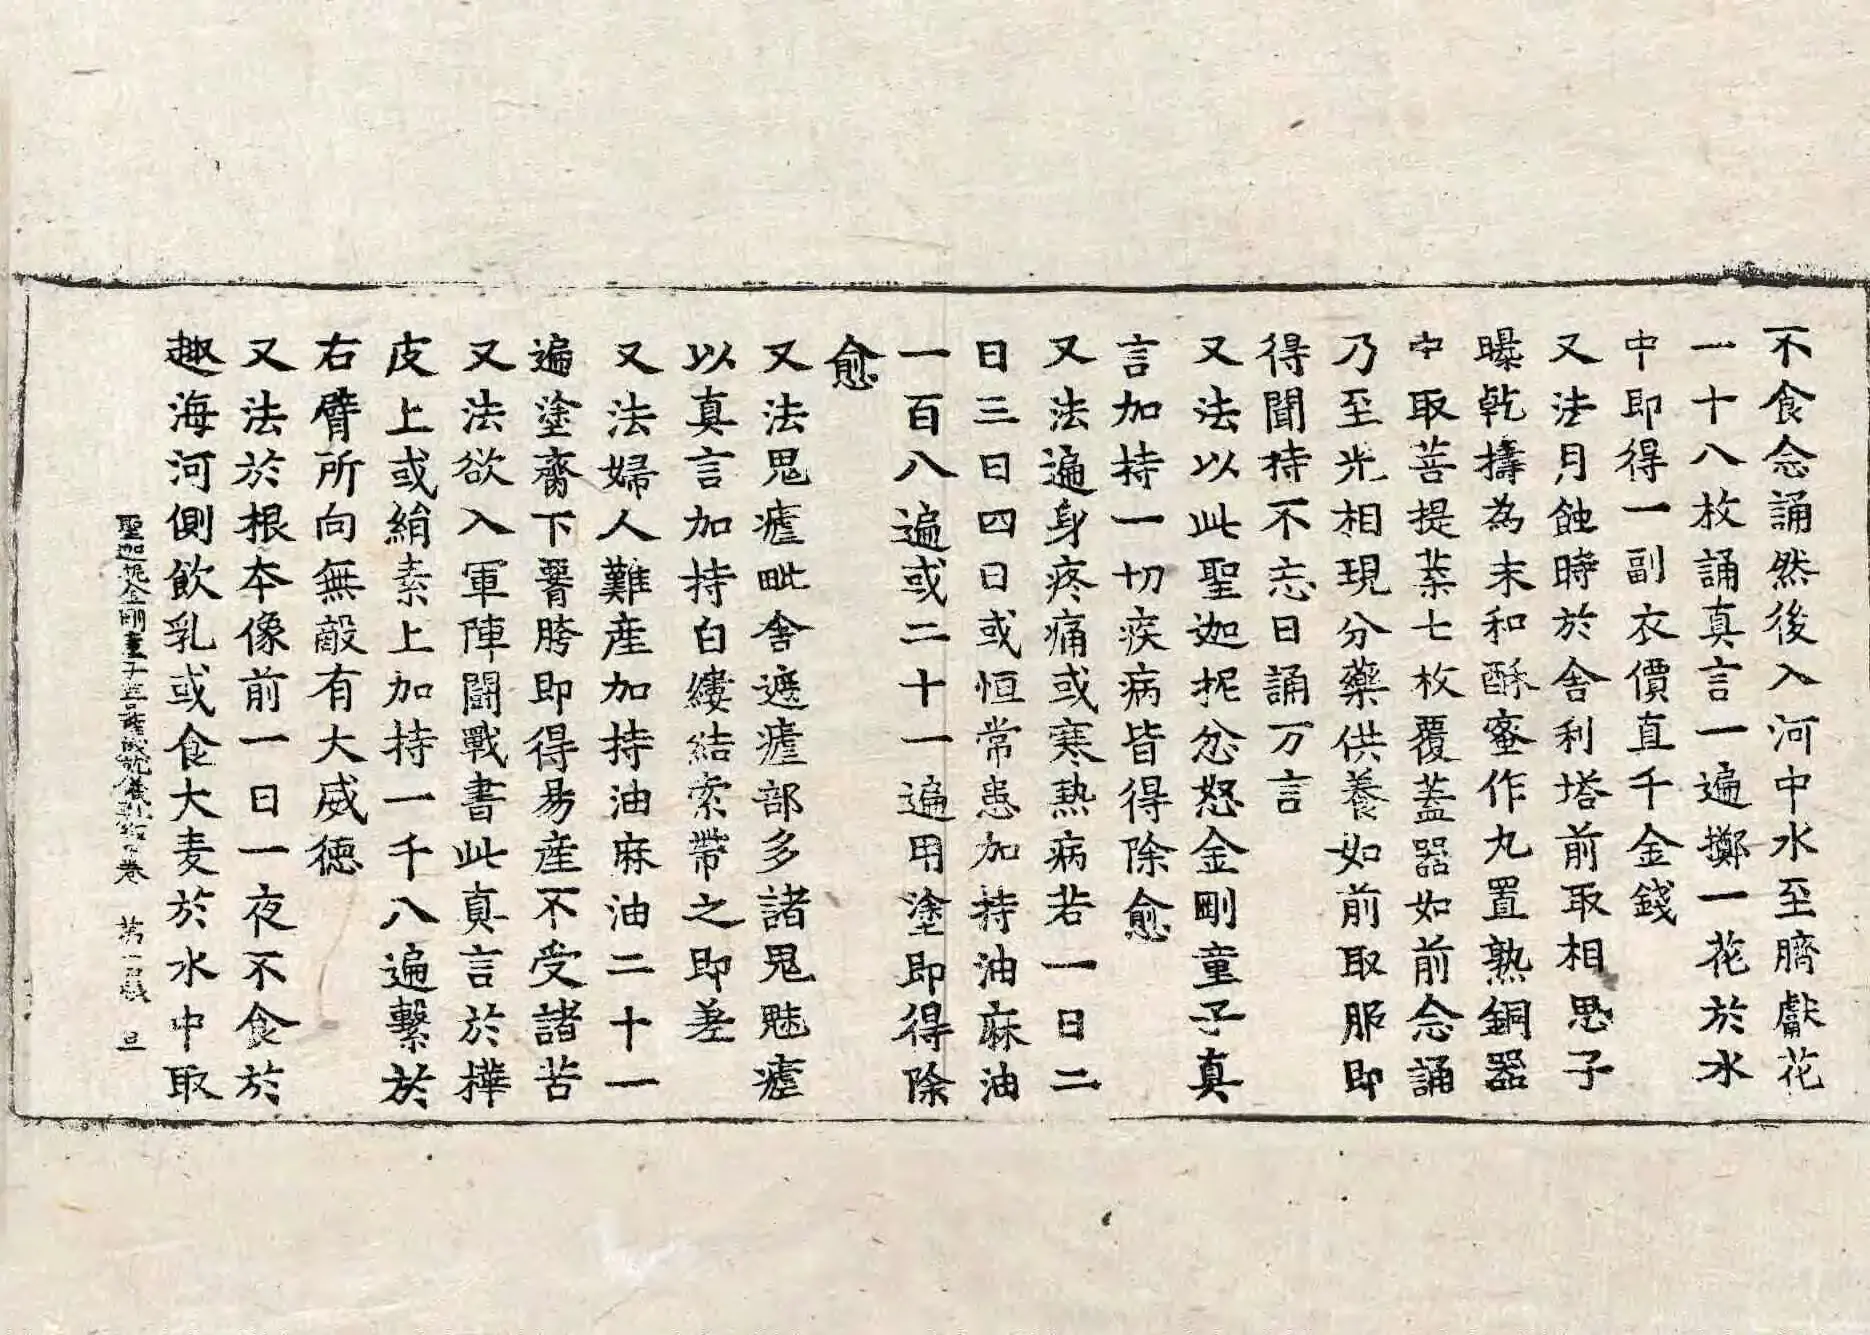 不食念誦然後入河中水至臍獻花
一十八枚誦真言一遍擲一花於水
中即得一副衣價直千金錢
又法月蝕時於舍利塔前取相思子
曝乾擣為末和酥蜜作丸置熟銅器
中取菩提葉七枚覆蓋器如前念誦
乃至光相現分藥供養如前取服即
得聞持不忘日誦万言
又法以此聖迦抳忿怒金剛童子真
言加持一切疾病皆得除愈
又法遍身疼痛或寒熱病若一日二
日三日四日或恒常患加持油麻油
一百八遍或二十一遍用塗即得除
愈
又法鬼瘧毗舍遮瘧部多諸鬼魅瘧
以真言加持白縷結索帶之即差
又法婦人難產加持油麻油二十一
遍塗齎下䐡胯即得易產不受諸苦
又法欲入軍陣鬪戰書此真言於樺
皮上或絹素上加持一千八遍繫於
右臂所向無敵有大威德
又法於根本像前一日一夜不食於
趣海河側飲乳或食大麦於水中取
聖迦抳金剛童子菩薩成就儀軌 卷 第一 張 旦